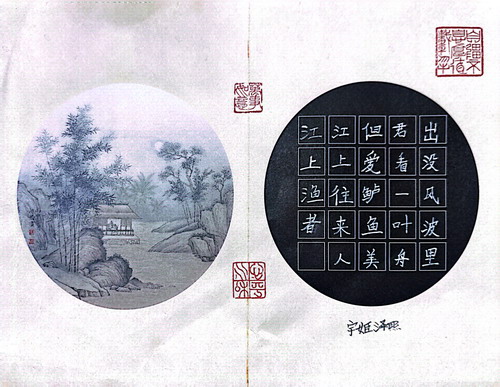 江上渔者
江上往来人
但爱鲈鱼美
君看一叶舟
出没风波里
萬事如意